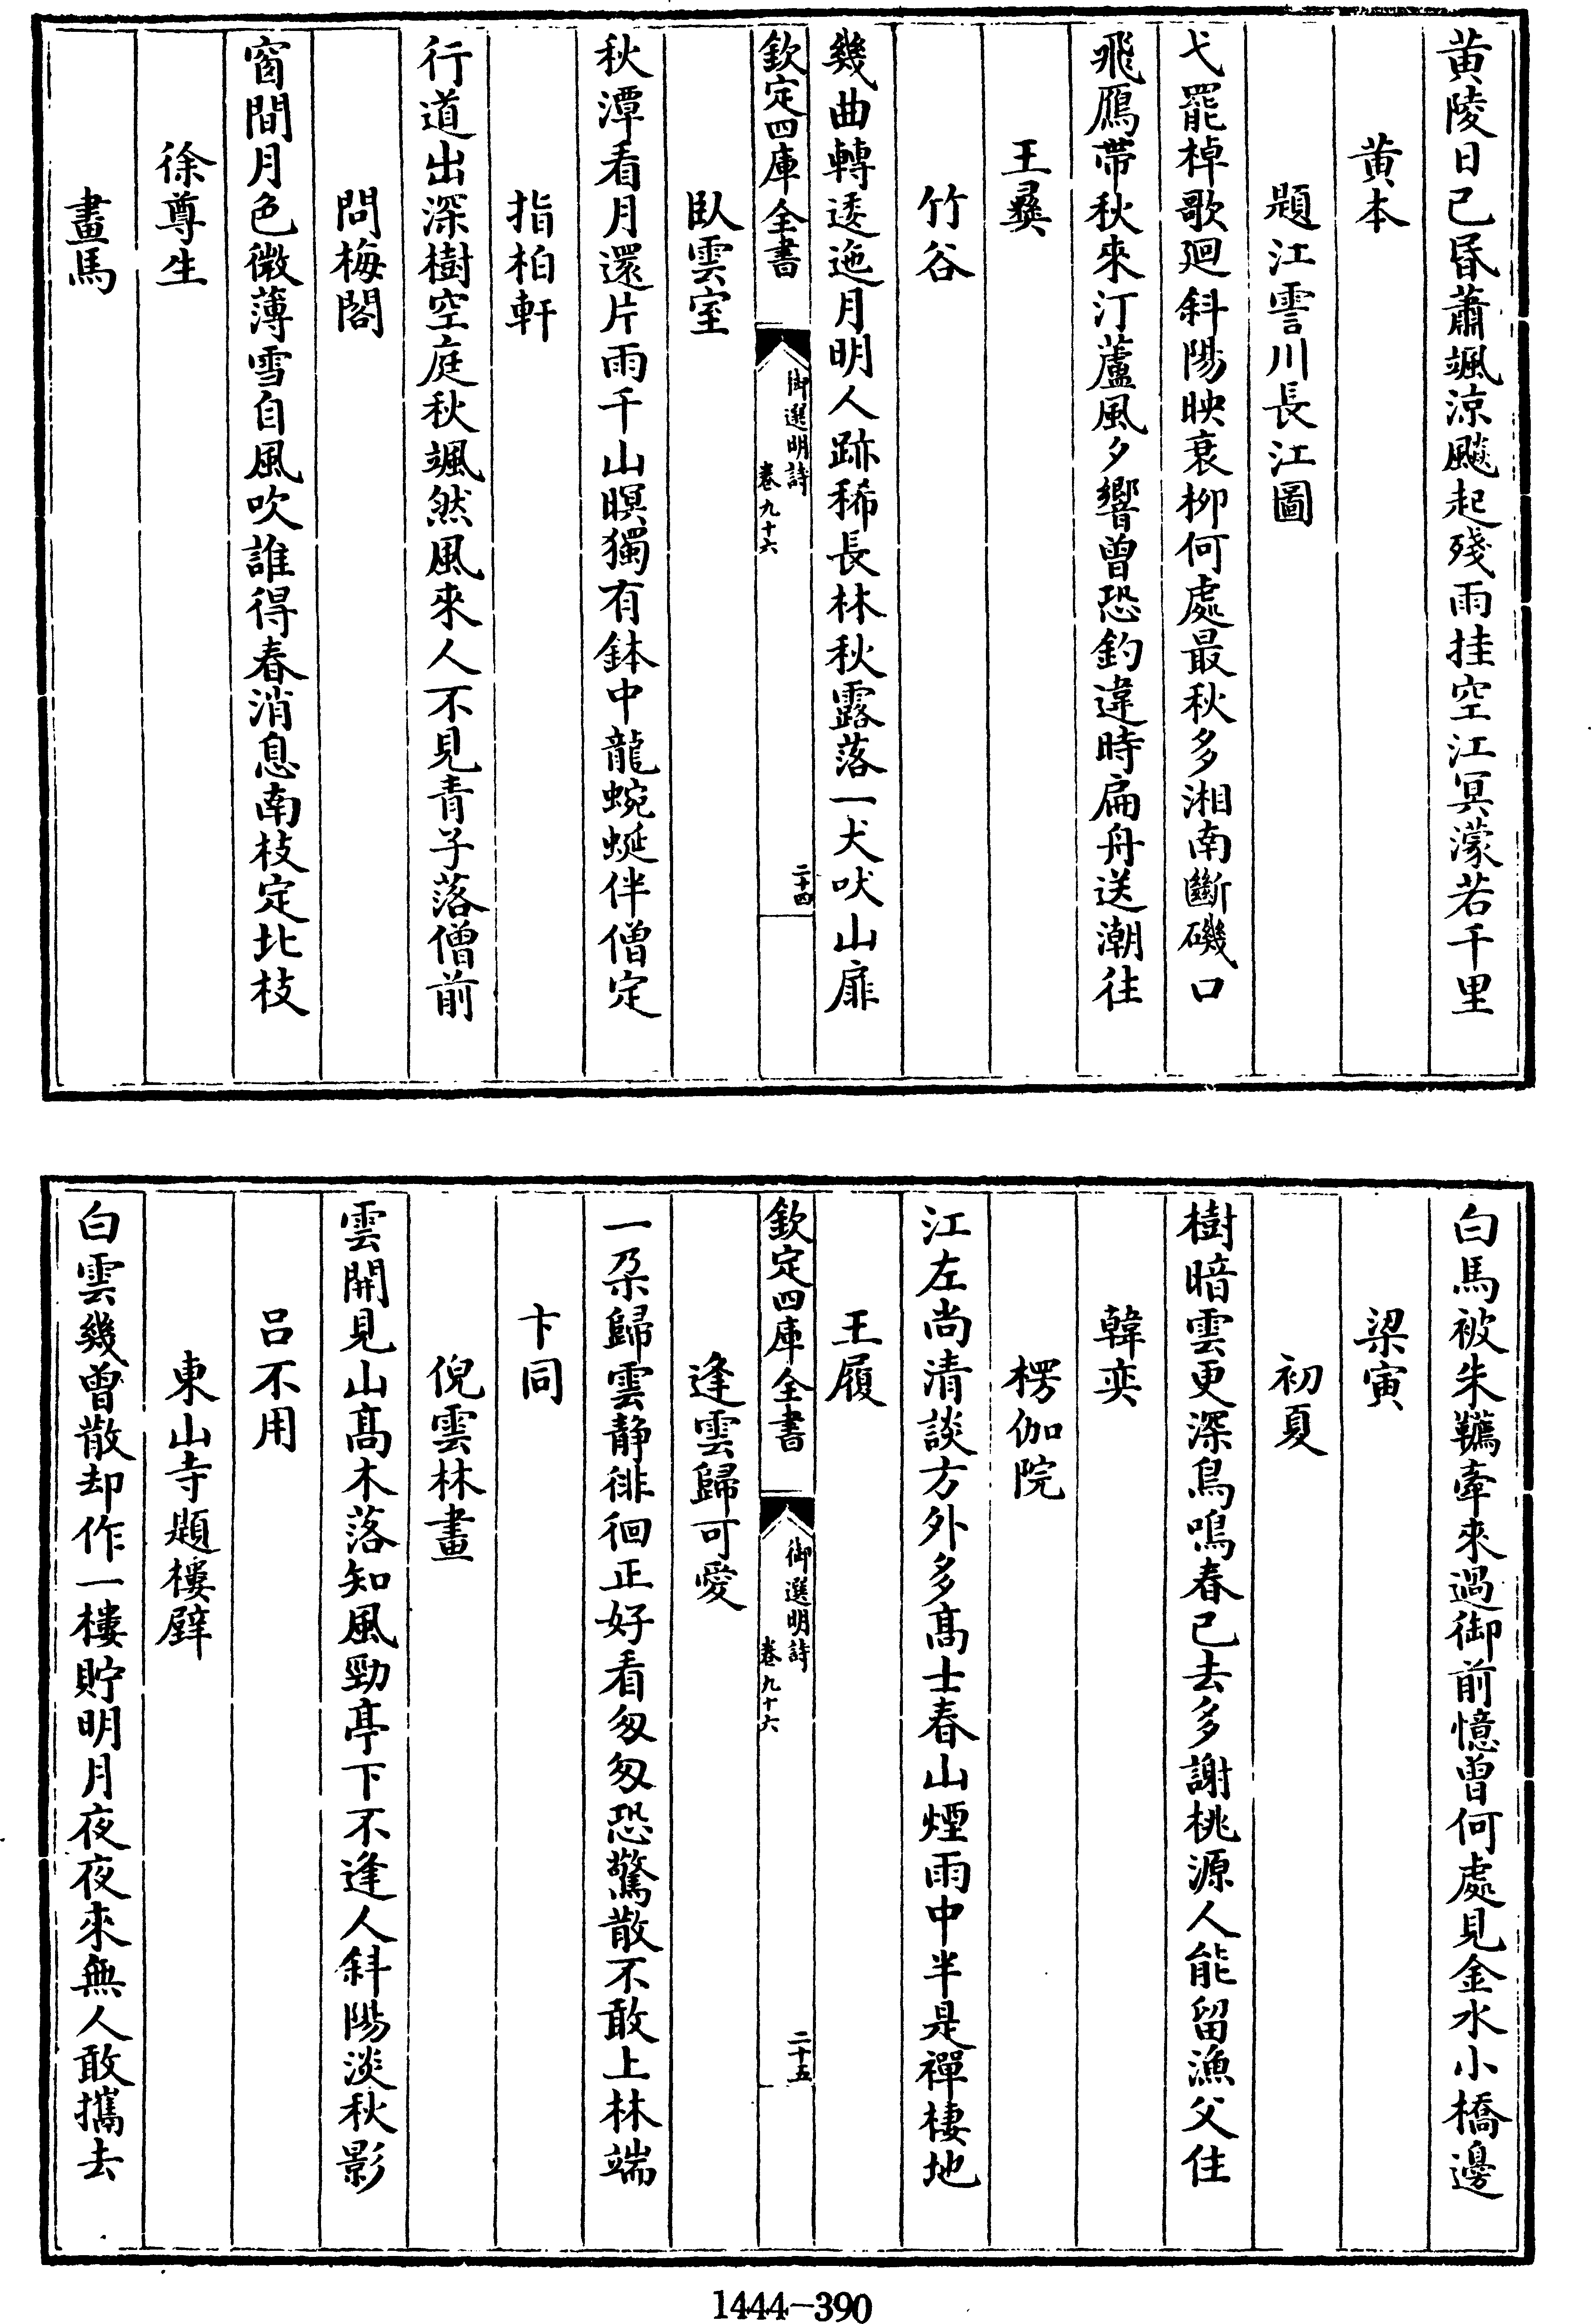 黄陵日已昏蕭颯涼颷起殘雨挂空江冥濛若千里
黄本
題江雲川長江圖
弋罷棹歌廻斜陽映衰柳何處最秋多湘南斷磯口
飛鴈帶秋來汀蘆風夕響曾恐釣違時扁舟送潮往
王彛
竹谷
幾曲轉逶迤月明人跡稀長林秋露落一犬吠山扉
欽定四庫全書
御選明詩
卷九十六
二十四
臥雲室
秋潭看月還片雨千山暝獨有鉢中龍蜿蜒伴僧定
指柏軒
行道出深樹空庭秋颯然風來人不見青子落僧前
問梅閣
窗間月色微薄雪自風吹誰得春消息南枝定北枝
徐尊生
畫馬
白馬被朱韉牽來過御前憶曾何處見金水小橋邊
梁寅
初夏
樹暗雲更深鳥鳴春已去多謝桃源人能留漁父住
韓奕
楞伽院
江左尚清談方外多髙士春山煙雨中半是禪棲地
王履
欽定四庫全書
御選明詩
卷九十六
二十五
逢雲歸可愛
一朶歸雲靜徘徊正好看匆匆恐驚散不敢上林端
卞同
倪雲林畫
雲開見山髙木落知風勁亭下不逢人斜陽淡秋影
呂不用
東山寺題樓壁
白雲幾曾散却作一樓貯明月夜夜來無人敢攜去
1444-390